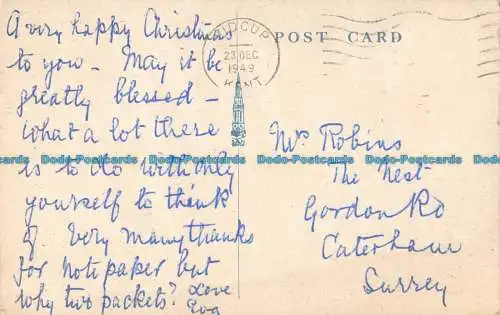 A very happy Christmas
to you – May it be
greatly blessed –
what a lot there
is to do with only
yourself to think
of. Very many thanks
for notepaper but
why two packets? Love
Eva
SIDCUP
23 DEC
1949
KENT
POST CARD
Mrs Robins
The Nest
Gordon Rd
Caterham
Surrey
Dodo-Postcards Dodo-Postcards Dodo-Postcards Dodo-Postcards Dodo-Postcards